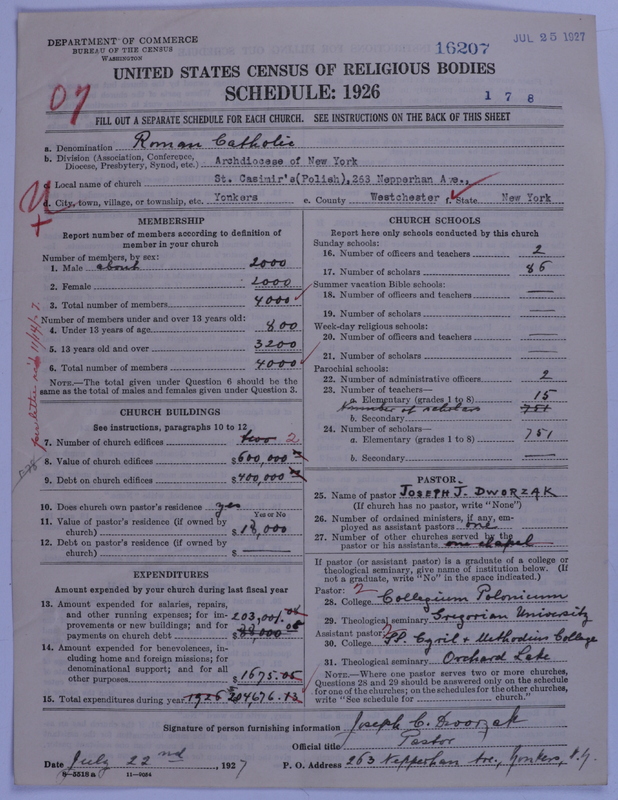 DEPARTMENT OF COMMERCE
BUREAU OF THE CENSUS
WASHINGTON
16207
JUL 25 1927
UNITED STATES CENSUS OF RELIGIOUS BODIES
SCHEDULE: 1926
178
07
FILL OUT A SEPARATE SCHEDULE FOR EACH CHURCH. SEE INSTRUCTIONS ON THE BACK OF THIS SHEET
a. Denomination Roman Catholic
b. Division (Association, Conference, Diocese, Presbytery, Synod, etc.) Archdiocese of New York
c. Local name of church St. Casimir's(Polish),263 Nepperhan Ave.,
d. City, town, village, or township, etc. Yonkers e. County Westchester f. State New York
MEMBERSHIP
Report number of members according to definition of
member in your church
Number of members, by sex:
1. Male about 2000
2. Female 2000
3. Total number of members 4000
Number of members under and over 13 years old:
4. Under 13 years of age 800
5. 13 years old and over 3200
6. Total number of members 4000
NOTE.—The total given under Question 6 should be the
same as the total of males and females given under Question 3.
CHURCH BUILDINGS
See instructions, paragraphs 10 to 12
7. Number of church edifices two 2
8. Value of church edifices $600,000
9. Debt on church edifices $400,000
10. Does church own pastor's residence yes
Yes or No
11. Value of pastor's residence (if owned by
church) $18,000
12. Debt on pastor's residence (if owned by
church) $ —
EXPENDITURES
Amount expended by your church during last fiscal year
13. Amount expended for salaries, repairs,
and other running expenses; for im-
provements or new buildings; and for
payments on church debt 203,001.08
14. Amount expended for benevolences, in-
cluding home and foreign missions; for
denominational support; and for all
other purposes $1675.05
15. Total expenditures during year 1926 $204676.13
CHURCH SCHOOLS
Report here only schools conducted by this church
Sunday schools:
16. Number of officers and teachers 2
17. Number of scholars 85
Summer vacation Bible schools:
18. Number of officers and teachers —
19. Number of scholars —
Week-day religious schools:
20. Number of officers and teachers —
21. Number of scholars —
Parochial schools:
22. Number of administrative officers 2
23. Number of teachers—
a. Elementary (grades 1 to 8) 15
Number of scholars 751
b. Secondary
24. Number of scholars—
a. Elementary (grades 1 to 8) 751
b. Secondary —
PASTOR
25. Name of pastor JOSEPH J. DWORZAK
(If church has no pastor, write "None")
26. Number of ordained ministers, if any, em-
ployed as assistant pastors one
27. Number of other churches served by the
pastor or his assistants one chapel
If pastor (or assistant pastor) is a graduate of a college or
theological seminary, give name of institution below. (If
not a graduate, write "No" in the space indicated.)
Pastor: 2
28. College Collegium Polonicum
29. Theological seminary Gregorian University
Assistant pastor: 2
30. College SS. Cyril + Methodius College
31. Theological seminary Orchard Lake
NOTE.—Where one pastor serves two or more churches,
Questions 28 and 29 should be answered only on the schedule
for one of the churches; on the schedules for the other churches,
write "See schedule for church."
Signature of person furnishing information Joseph C. Dworzak
Official title Pastor
Date July 22nd, 1927 P. O. Address 263 Nepperhan Ave., Yonkers, N.Y.
8—5518a 11—9084